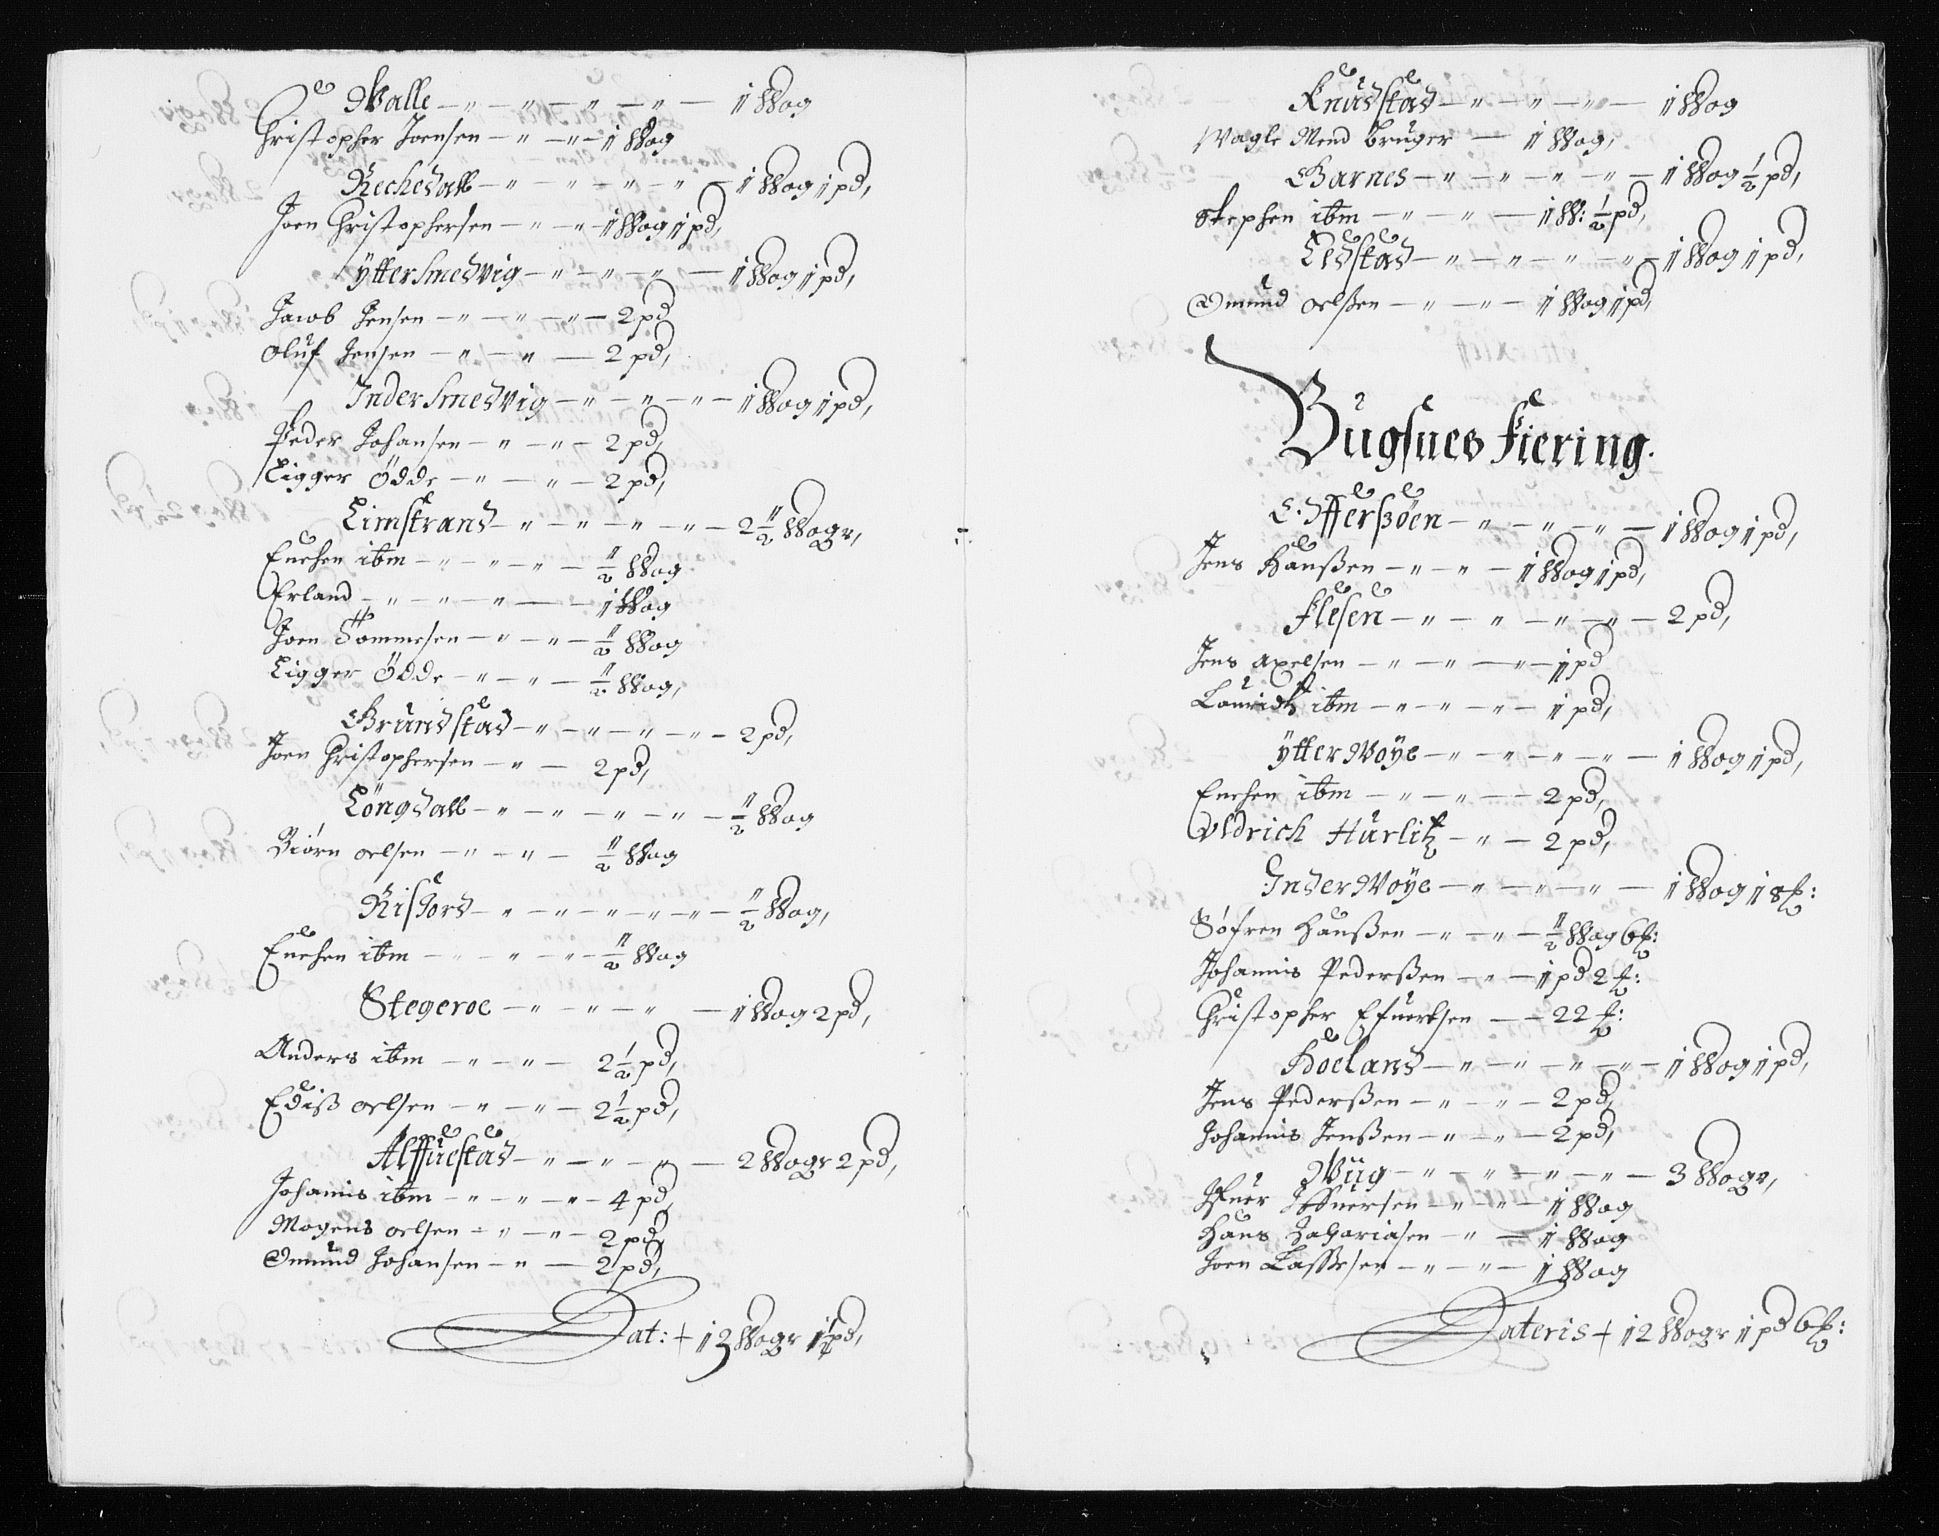 Walle — 1 Wog
Christopher Joensen — 1 Wog
Rechedall — 1 Wog 1 pd,
Joen Christophersen — 1 Wog 1 pd,
Ytter Smedvig — 1 Wog 1 pd,
Jacob Jensen — 2 pd
Oluf Jensen — 2 pd,
Inder Smedvig — 1 Wog 1 pd,
Peder Johansen — 2 pd,
Ligger Ödde — 2 pd,
Limstrand — 2 ½ Wogr,
Enchen ibm — ½ Wog
Erland — 1 Wog
Joen Tommesen — ½ Wog
Ligger Ödde — ½ Wog,
Grundstad — 2 pd,
Joen Christophersen — 2 pd,
Löngdall — ½ Wog
Biörn oelsen — ½ Wog
Risiord — ½ Wog,
Enchen ibm — ½ Wog
Stegeroe — 1 Wog 2 pd,
Anders ibm — 2 ½ pd,
Ediss oelsen — 2 ½ pd,
Alffuestad — 2 Wogr 2 pd,
Johannis ibm — 4 pd
Mogens oelsen — 2 pd,
Omund Johansen — 2 pd,
Lat: + 13 Wogr 1 ½ pd,
Knudstad — 1 Wog
Wagle Mend bruger — 1 Wog,
Garnes — 1 Wog ½ pd,
Stephen ibm — 1 W: ½ pd,
Eldstad — 1 Wog 1 pd,
Omund oelßen — 1 Wog 1 pd,
Bugsnes Fiering.
Offersöen — 1 Wog 1 pd,
Jens Hanßen — 1 Wog 1 pd,
Flesen — 2 pd,
Jens Axelsen — 1 pd
Lauridtz ibm — 1 pd,
Ytter Woye — 1 Wog 1 pd,
Enchen ibm — 2 pd,
Uldrich Hurlitz — 2 pd,
Inder Woye — 1 Wog 18 ℔:
Söfren Hanßen — ½ Wog 6 ℔:
Johannis Pederßen — 1 pd 2 ℔:
Christopher Efuertsen — 22 ℔:
Hoeland — 1 Wog 1 pd,
Jens Pederßen — 2 pd,
Johannis Jenßen — 2 pd,
Wiig — 3 Wogr,
Ifuer Iffuersen — 1 Wog
Hans Zachariasen — 1 Wog
Joen Lassesen — 1 Wog
Lateris + 12 Wogr 1 pd 6 ℔: